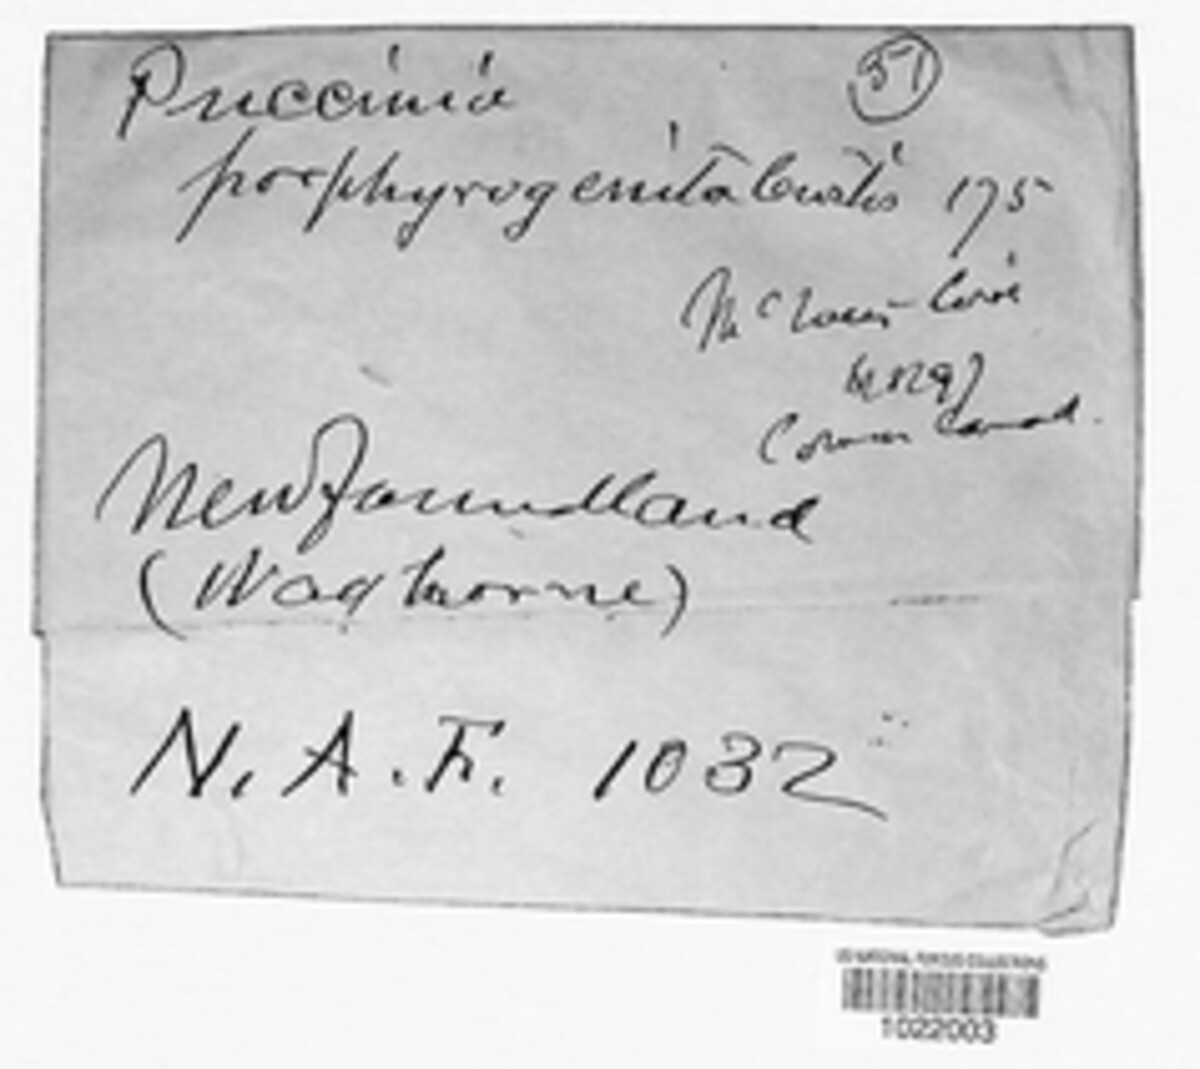 Puccinia 57
porphyrogenita Curtis 175
McIvers Cove
Cornus Canad.
Newfoundland
(Waghorne)
N. A. F. 1032
US NATIONAL FUNGUS COLLECTIONS
1022003